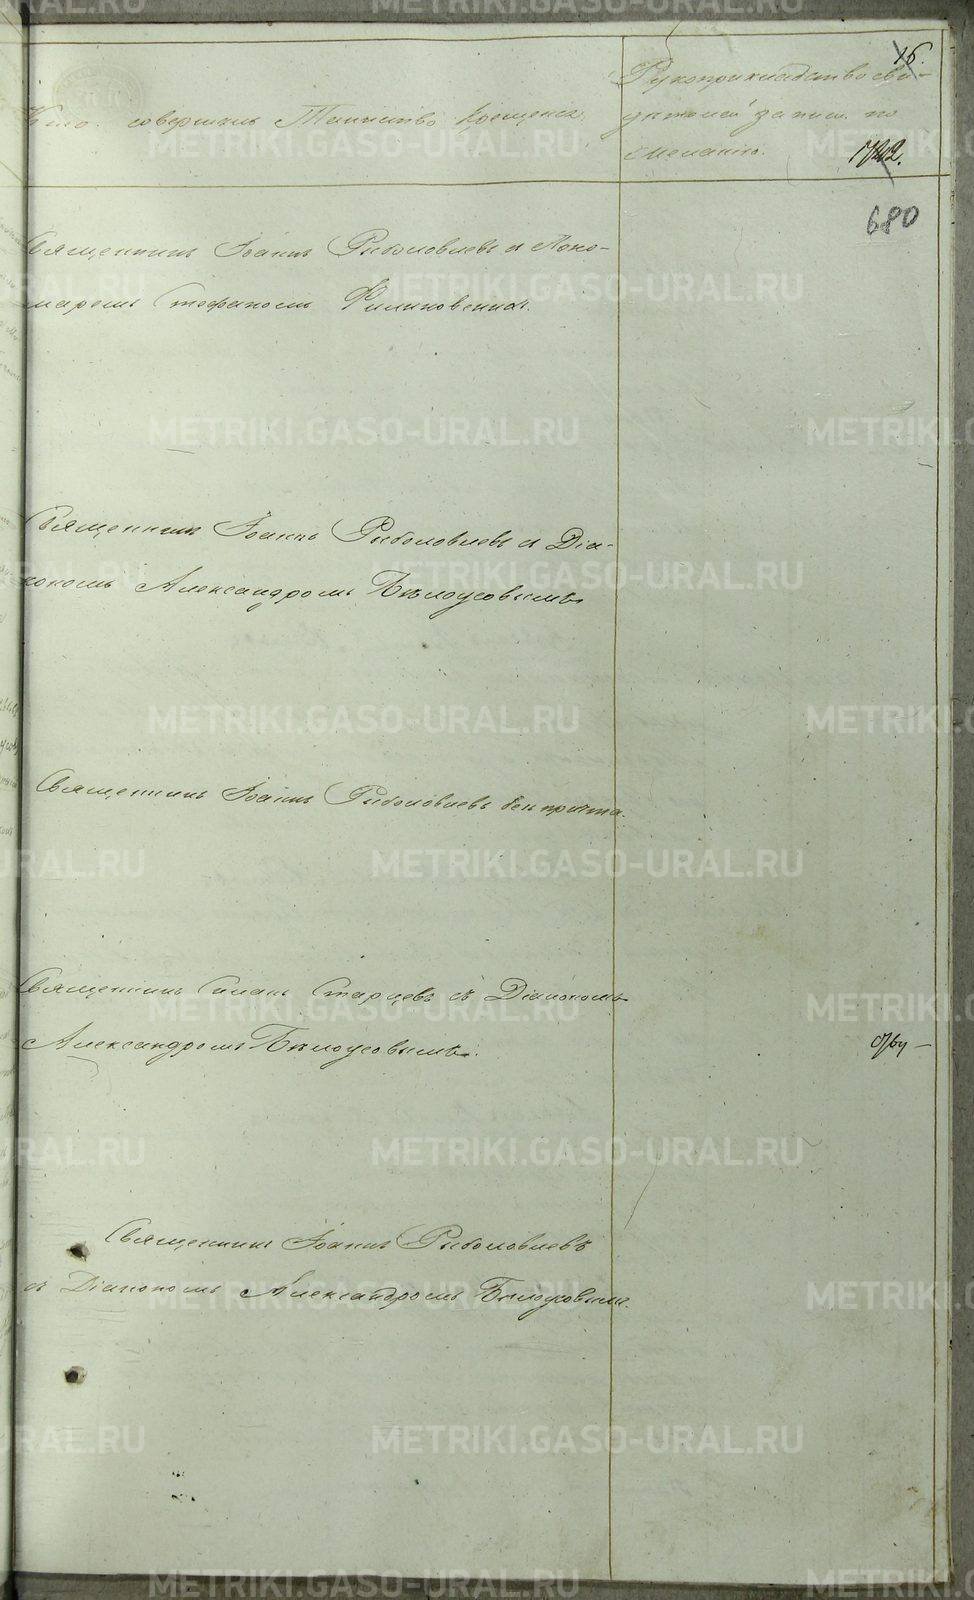 15.
Кто совершалъ Таинство крещенія.
Рукоприкладство сви-
дѣтелей записи по
желанію.
680
Священникъ Іоаннъ Рыболовлевъ съ Поно-
маремъ Стефаномъ
Священникъ Іоаннъ Рыболовлевъ съ Діа-
кономъ Александромъ Бѣлоусовымъ
Священникъ Іоаннъ Рыболовлевъ безъ причта.
Священникъ Старцевъ съ Діакономъ
Александромъ Бѣлоусовымъ.
Священникъ Іоаннъ Рыболовлевъ
съ Діакономъ Александромъ Бѣлоусовымъ.
METRIKI.GASO-URAL.RU